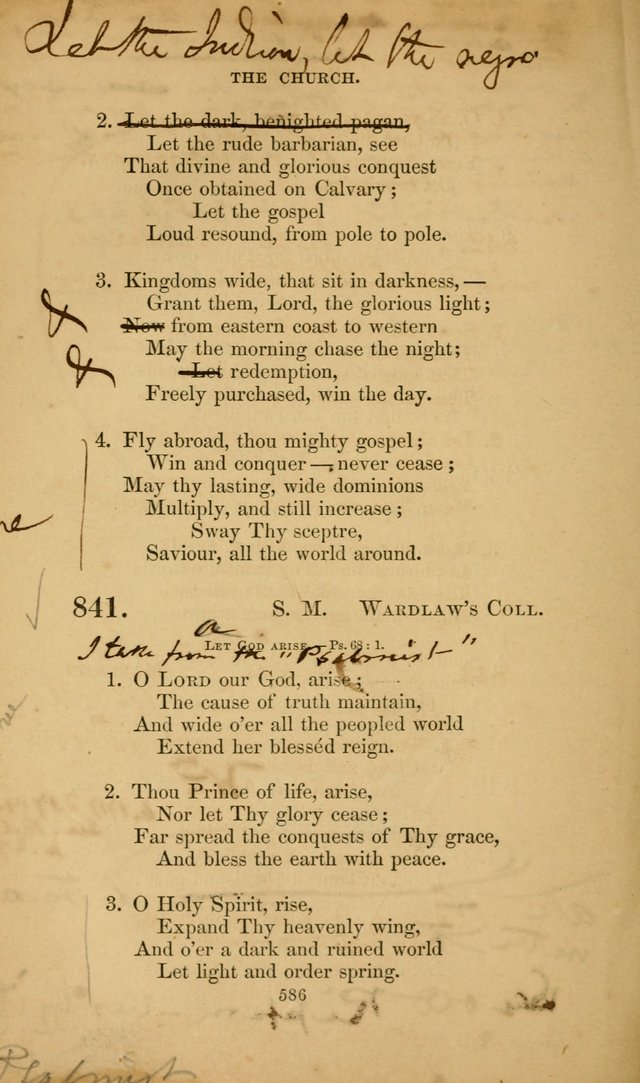 Let the Indian, let the negro
THE CHURCH.
2. Let the dark, benighted pagan,
Let the rude barbarian, see
That divine and glorious conquest
Once obtained on Calvary;
Let the gospel
Loud resound, from pole to pole.
3. Kingdoms wide, that sit in darkness,—
Grant them, Lord, the glorious light;
& Now from eastern coast to western
May the morning chase the night;
& Let redemption,
Freely purchased, win the day.
4. Fly abroad, thou mighty gospel;
Win and conquer—, never cease;
May thy lasting, wide dominions
Multiply, and still increase;
Sway Thy sceptre,
Saviour, all the world around.
841. S. M. WARDLAW'S COLL.
a
LET GOD ARISE.—Ps. 68: 1.
I take from the "Psalmist"
1. O LORD our God, arise;
The cause of truth maintain,
And wide o'er all the peopled world
Extend her blesséd reign.
2. Thou Prince of life, arise,
Nor let Thy glory cease;
Far spread the conquests of Thy grace,
And bless the earth with peace.
3. O Holy Spirit, rise,
Expand Thy heavenly wing,
And o'er a dark and ruined world
Let light and order spring.
586
Psalmist